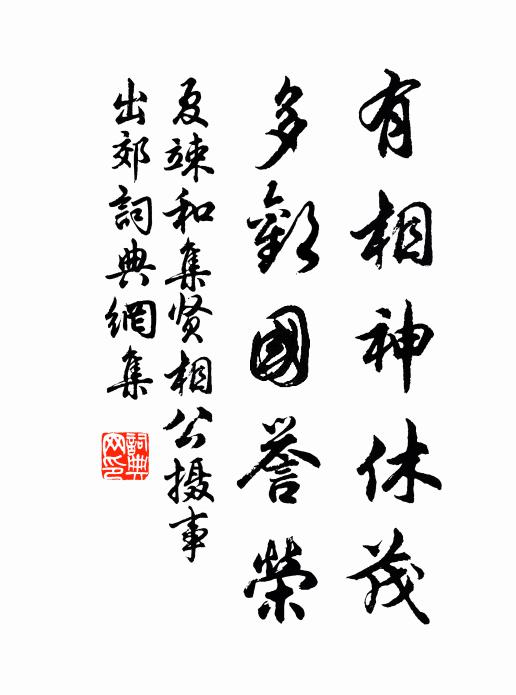 有相神休茂
多歡國譽榮
夏竦和集贤相公摄事
出郊詞典網集
詞典網印